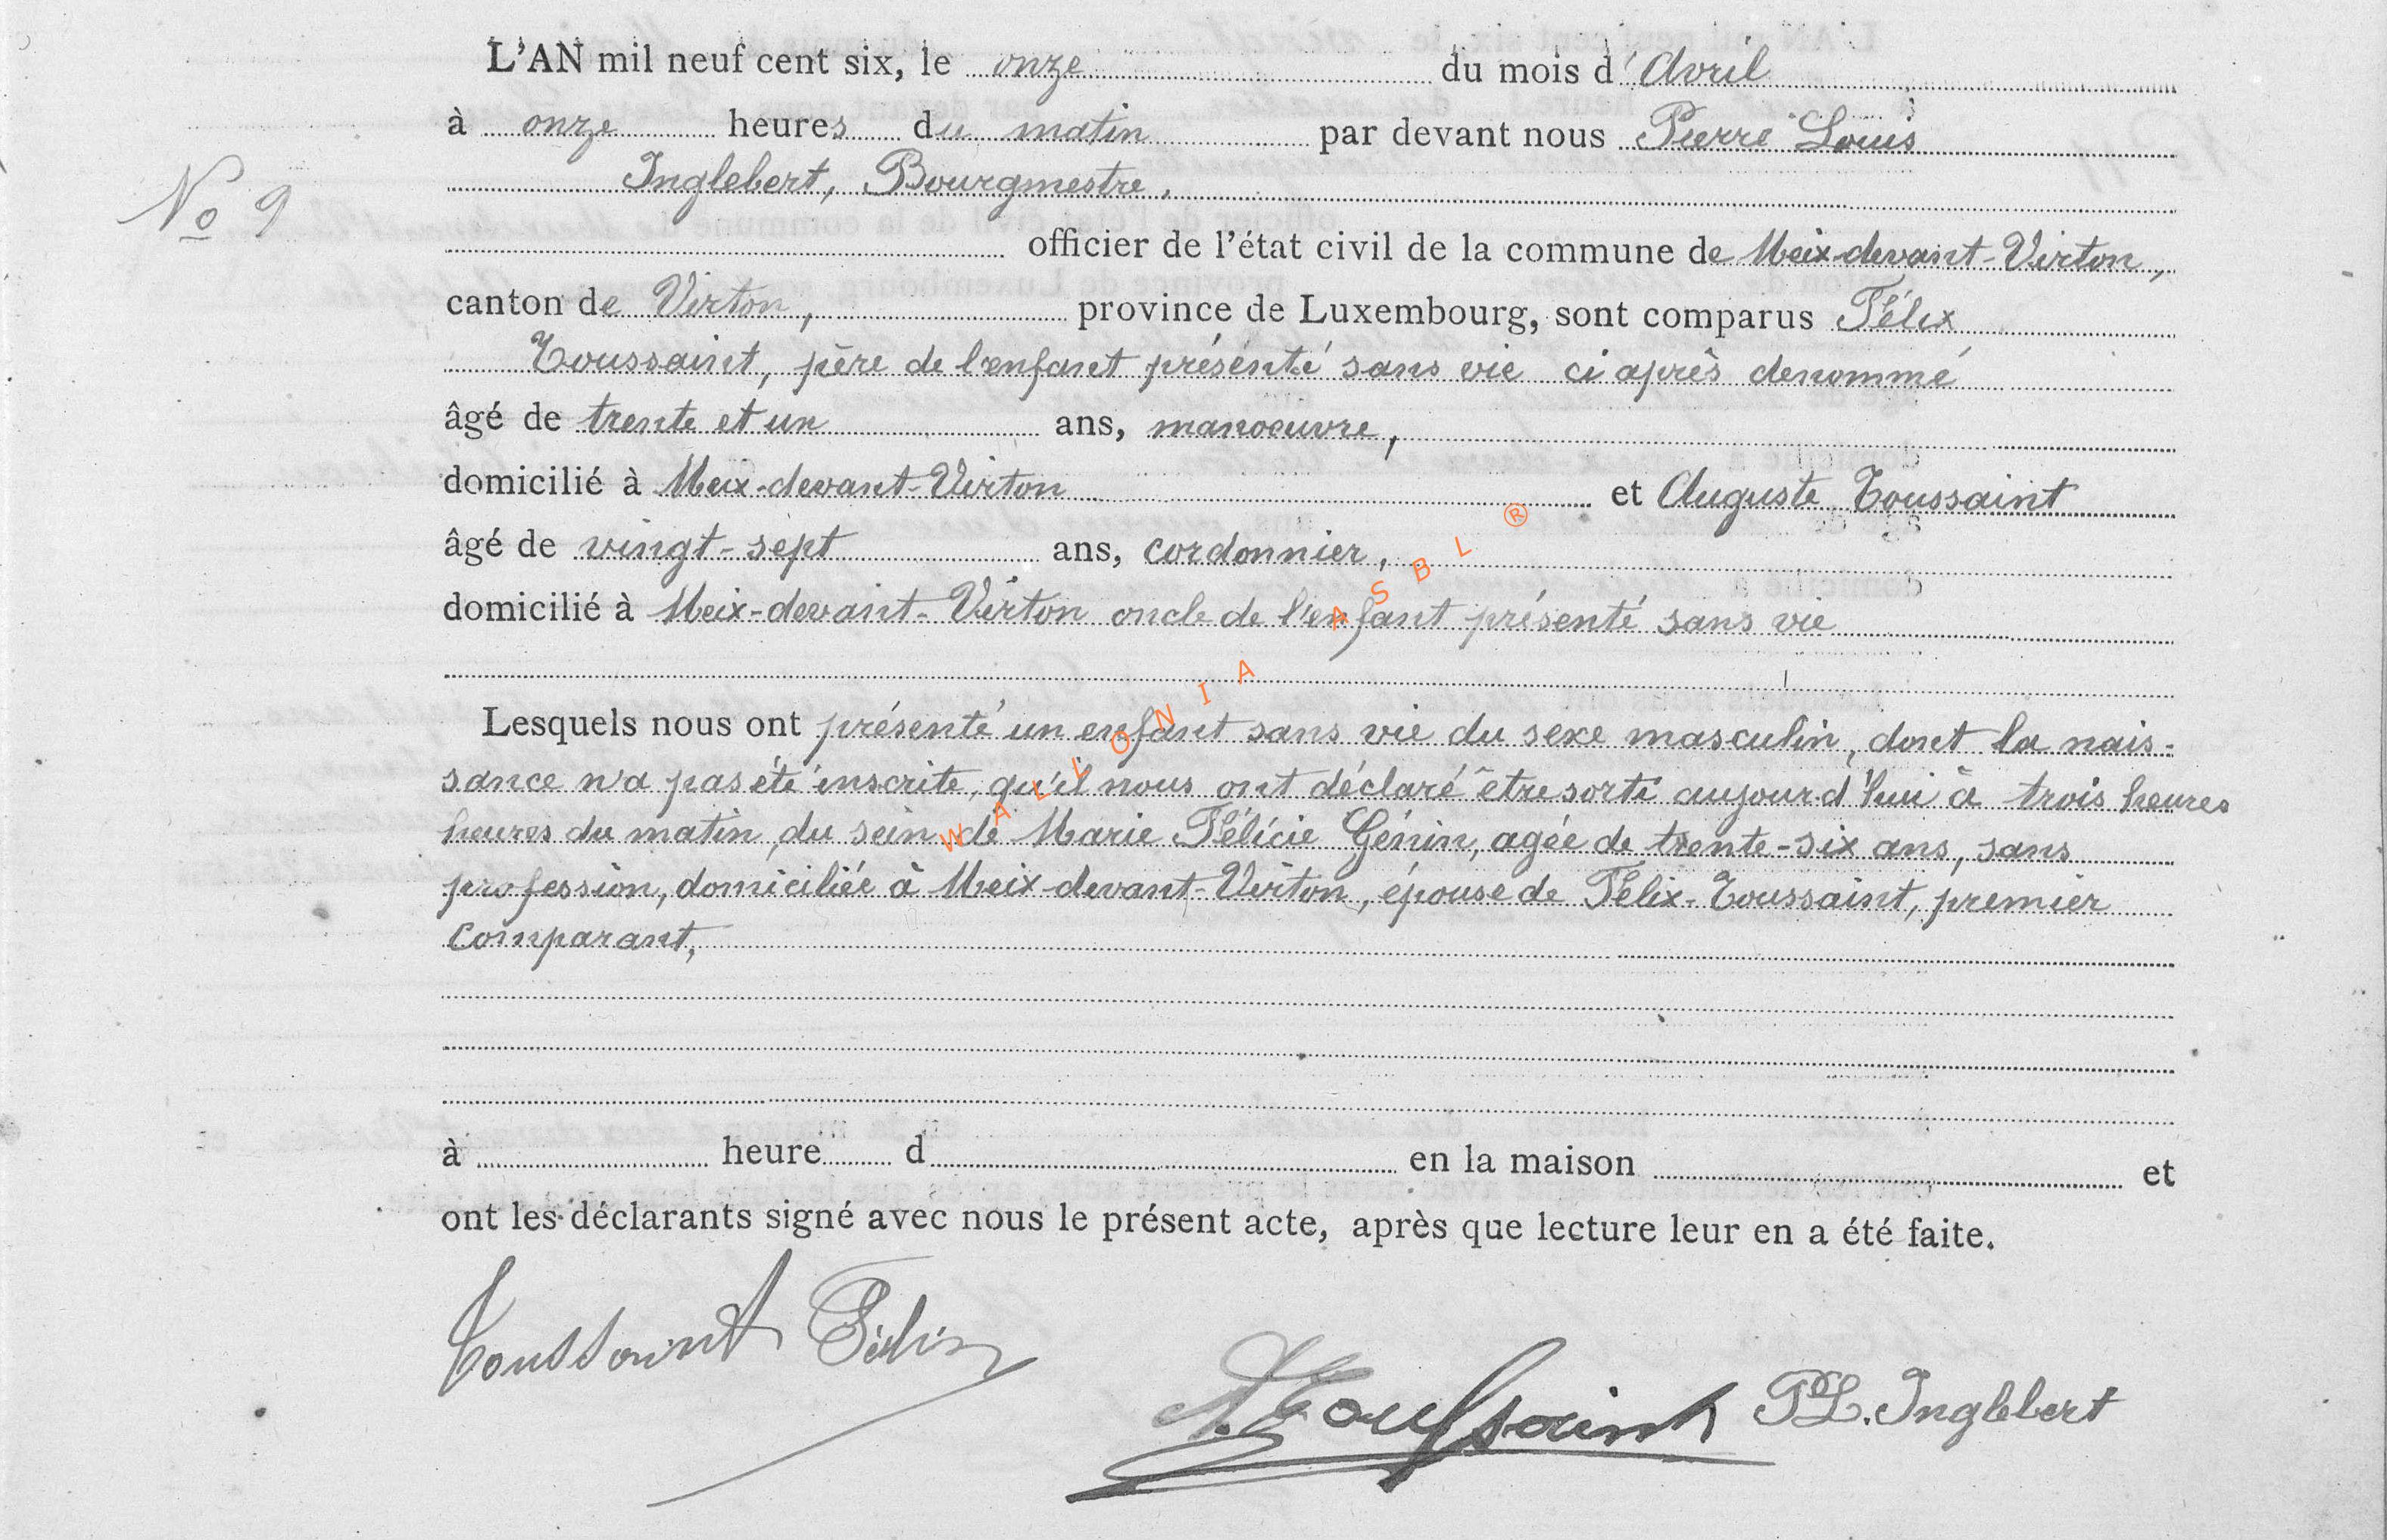 L'AN mil neuf cent six, le onze du mois d'Avril
à onze heures du matin par devant nous Pierre Louis
Inglebert, Bourgmestre,
No 9
officier de l'état civil de la commune de Meix-devant-Virton,
canton de Virton, province de Luxembourg, sont comparus Félix
Toussaint, père de l'enfant présenté sans vie ci après denommé
âgé de trente et un ans, manoeuvre,
domicilié à Meix-devant-Virton et Auguste Toussaint
âgé de vingt-sept ans, cordonnier,
domicilié à Meix-devant-Virton oncle de l'enfant présenté sans vie
Lesquels nous ont présenté un enfant sans vie du sexe masculin, dont la nais-
sance n'a pas été inscrite, qu'il nous ont déclaré être sorti aujourd'hui à trois heures
heures du matin, du sein de Marie Félicie Génin, agée de trente-six ans, sans
profession, domiciliée à Meix-devant-Virton, épouse de Félix-Toussaint, premier
comparant,
à heure d en la maison et
ont les déclarants signé avec nous le présent acte, après que lecture leur en a été faite.
Toussaint Félix
A. Toussaint PL. Inglebert
WALLONIA ASBL ®